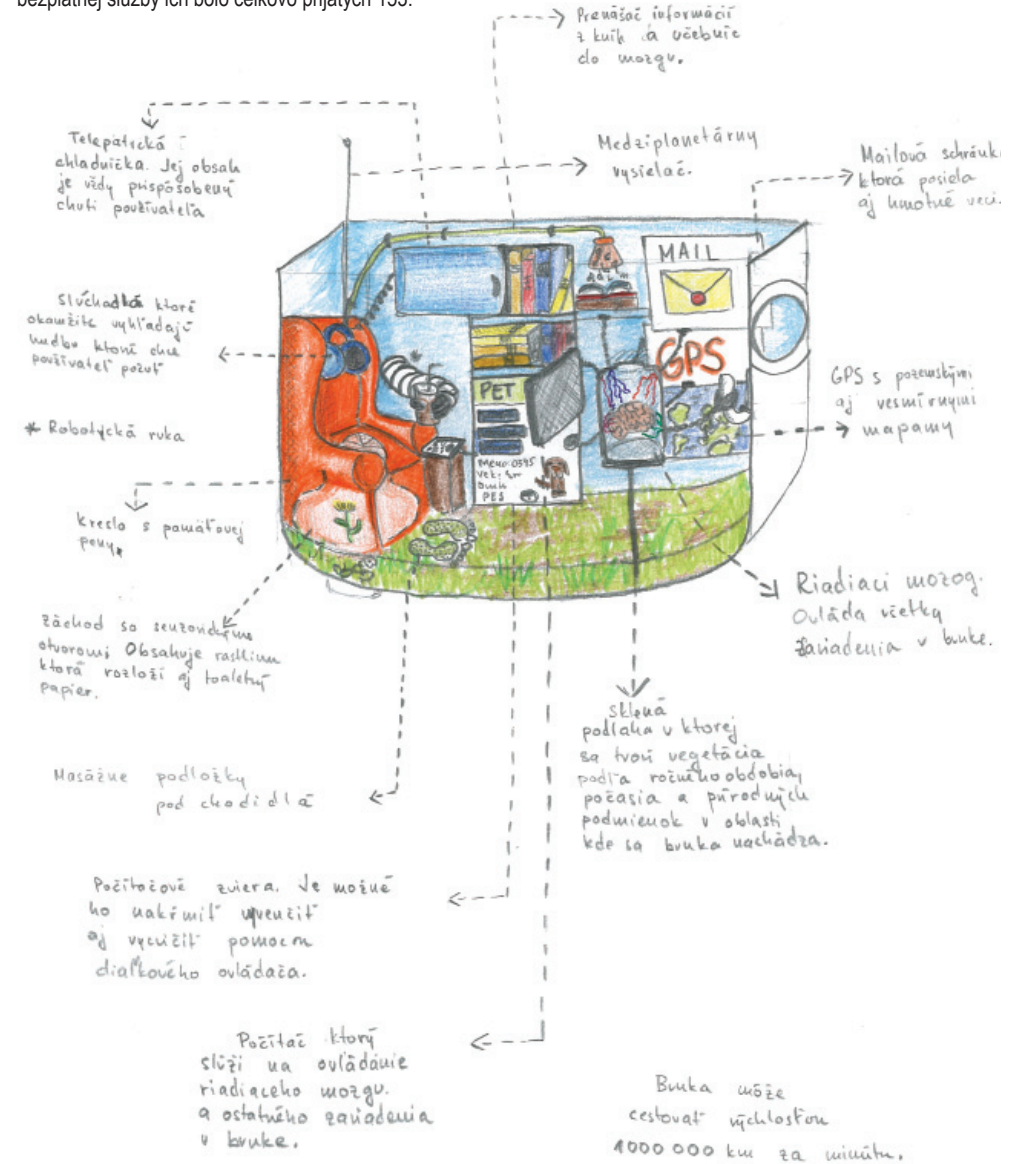 bezplatnej služby ich bolo celkovo prijatých 155.
Prenášač informácií
z kníh a učebníc
do mozgu.
Telepatická
chladnička. Jej obsah
je vždy prispôsobený
chuti používateľa
Medziplanetárny
vysielač.
Mailová schránk
ktorá posiela
aj hmotné veci.
MAIL
Slúchadlá ktoré
okamžite vyhľadajú
hudbu ktorú chce
používateľ počuť
GPS
PET
GPS s pozemskými
aj vesmírnymi
mapamy
* Robotická ruka
*
Meno: 0395
Vek:
Druh
PES
Kreslo s pamäťovej
peny.
Riadiaci mozog.
Ovláda všetky
zariadenia v bunke.
Záchod so senzorickými
otvorom; Obsahuje rastlinu
ktorá rozloží aj toaletný
papier.
Sklená
podlaha v ktorej
sa tvorí vegetácia
podľa ročného obdobia,
počasia a prírodných
podmienok v oblasti
kde sa bunka nachádza.
Masážne podložky
pod chodidlá
Počítačové zviera. Je možné
ho nakŕmiť vyvenčiť
aj vycvičiť pomocou
diaľkového ovládača.
Počítač ktorý
slúži na ovládanie
riadiaceho mozgu.
a ostatného zariadenia
v bunke.
Bunka môže
cestovať rýchlosťou
1000 000 km za minútu.